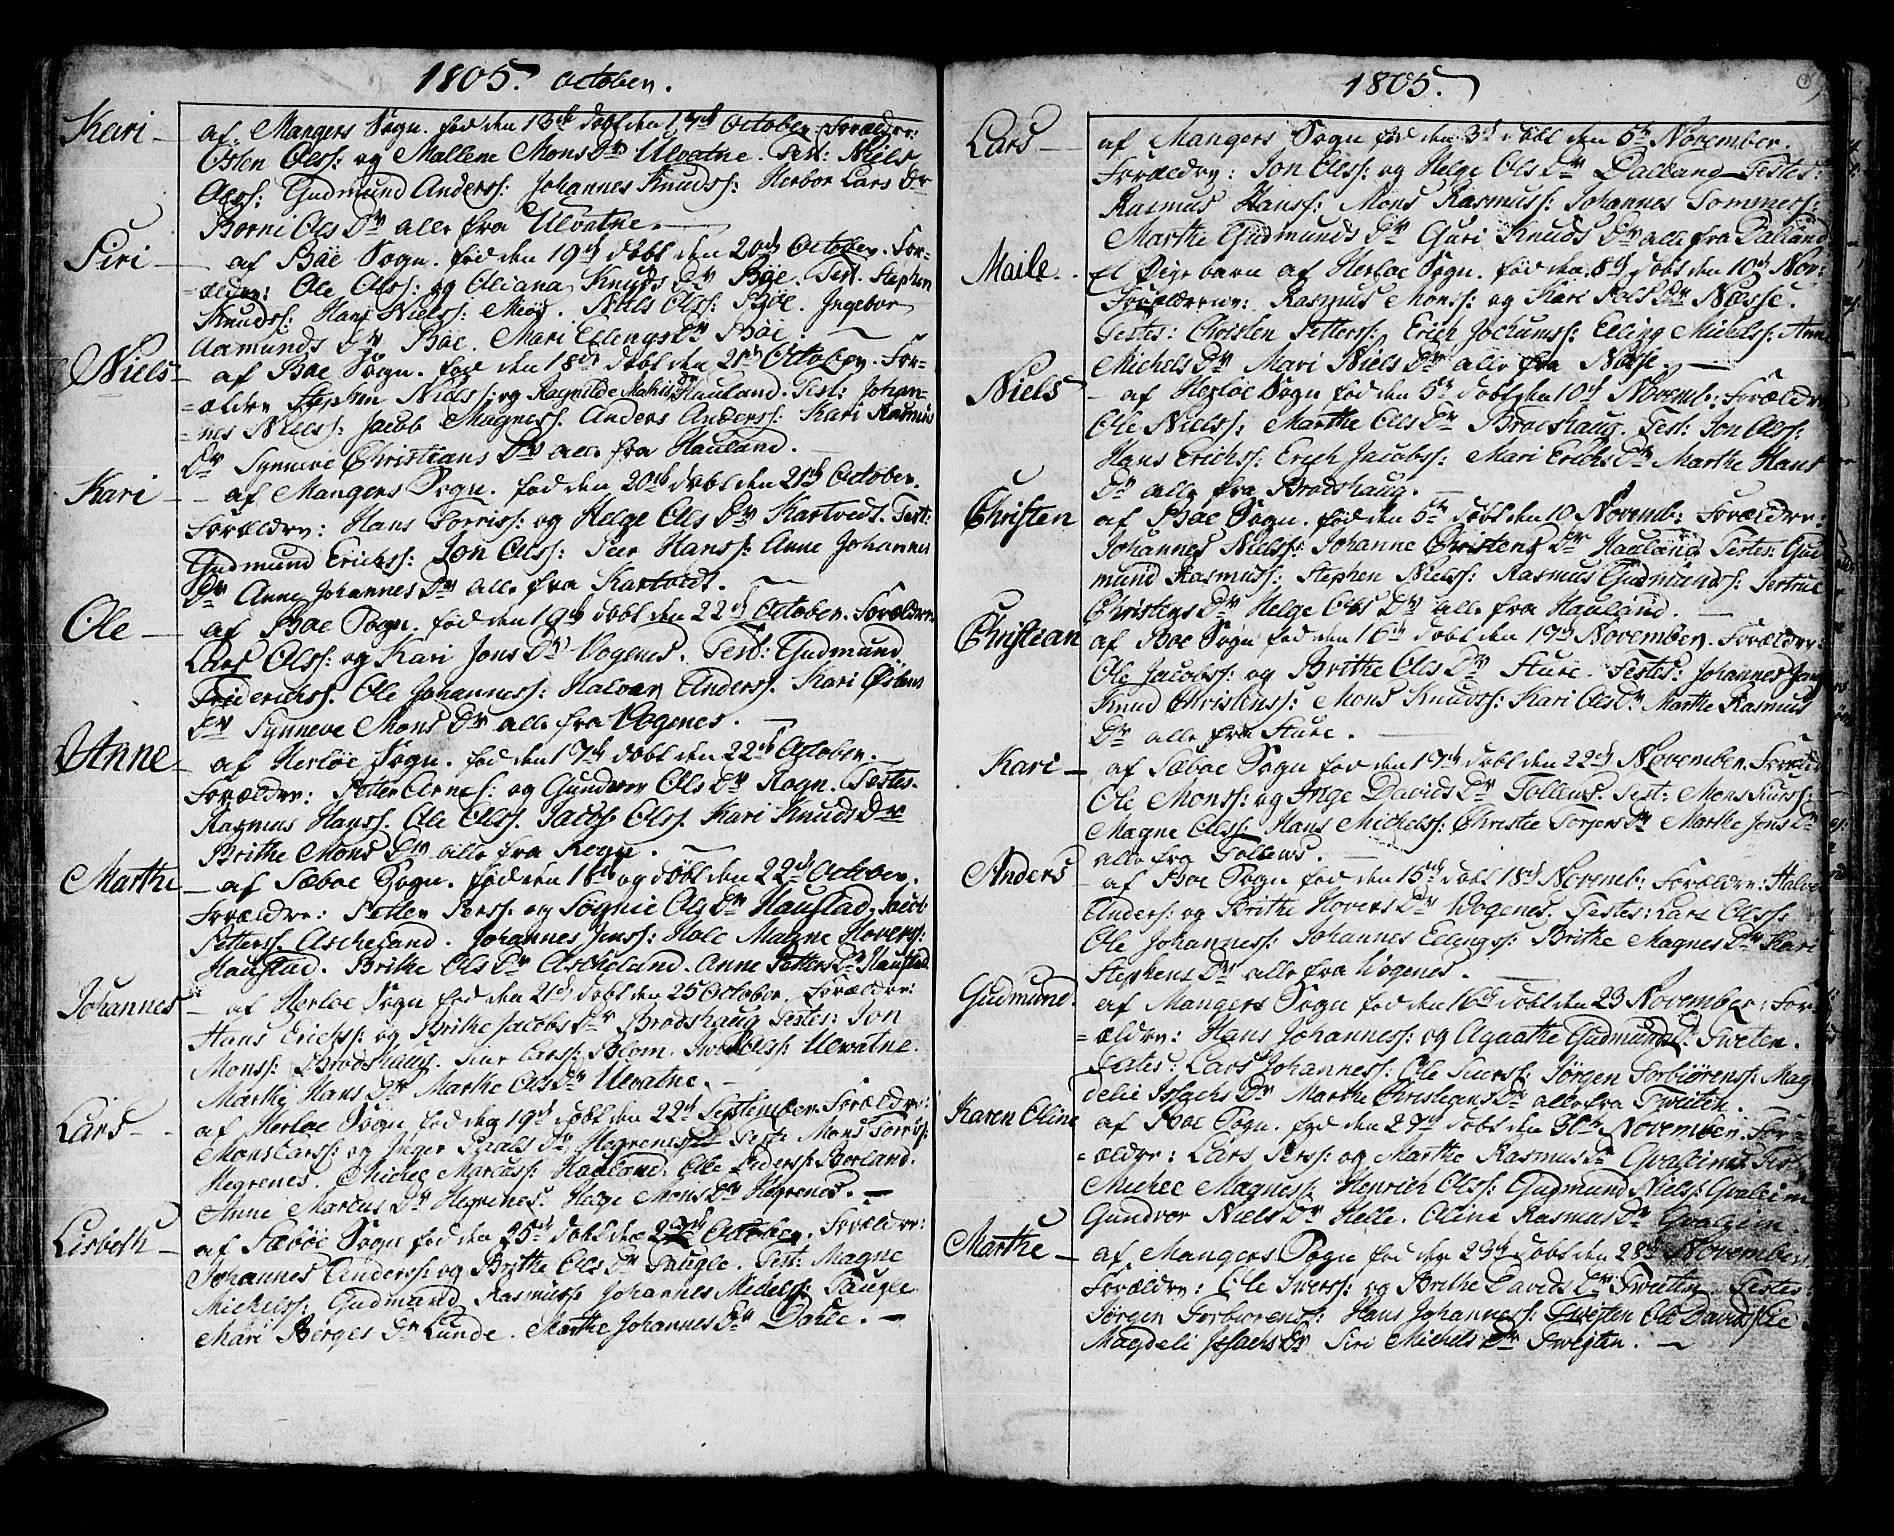 1805. October.
Kari — af Mangers Sogn. fød den 13de døbt den 14de October. Forældre:
Osten Olss: og Mallene Mons Dr Ulvatne. Test: Niels
Olss: Gudmund Anderss: Johannes Knudss: Herbor Lars Dr
Borni Ols Dr alle fra Ulvatne. —
Siri — af Böe Sogn. fød den 19de döbt den 20de October. For-
=ældre: Ole Olss: og Oliana Knuds Dr Böe. Test. Stephen
Knudss: Hans Nielss: Niels Olss: Böe. Ingebor
Aamunds Dr Böe. Mari Ellengs Dr Böe. —
Niels — af Böe Sogn. fød den 18de døbt den 21de October. For-
=ældre Stephen Nielss: og Ragnilde Hauland. Test: Johan-
=nes Nielss: Jacob Magness. Anders Anderss: Kari Rasmus
Dr Synneve Christians Dr alle fra Hauland. —
Kari — af Mangers Sogn. fød den 20de døbt den 21de October.
Forældre: Hans Torriss: og Helge Ols Dr Kartvedt. Test:
Gudmund Erickss: Jon Olss: Peer Hanss: Anne Johannes
Dr Anne Johannes Dr alle fra Kartvedt.
Ole — af Boe Sogn. fød den 19de døbt den 22de October. Forældre
Lars Olss: og Kari Jons Dr Vogenes. Test: Gudmund
Friderichss. Ole Johanness: Halvor Anderss. Kari Østens
Dr Synneve Mons Dr alle fra Vogenes. —
Anne — af Herløe Sogn. fød den 17de døbt den 22de October.
Forældre: Petter Arnes: og Gundvor Ols Dr Rogn. Testes.
Rasmus Hanss. Ole Olss. Jacob Olss. Kari Knuds Dr
Brithe Mons Dr alle fra Rogn. —
Marthe — af Sæboe Sogn. fød den 18 og døbt den 22de October.
Forældre: Petter Perss. og Ols Dr Haustad. Jacob
Petterss. Ascheland. Johannes Jenss: Hole Magne Hoverss:
Haustad. Brithe Ols Dr Ascheland. Anne Petters Dr Haustad.
Johannes — af Herloe Sogn fød den 21de døbt den 25 October. Forældre:
Hans Erichss: og Brithe Jacobs Dr Brodshaug Testes: Jon
Monss: Brodshaug. Larss: Blom. Iver Olss: Ulvatne.
Marthe Hans Dr Marthe Ols Dr Ulvatne. —
Lars — af Herloe Sogn fød den 19de døbt den 22de September. Forældre:
Mons Larss: og Inger Dr Hegrenes Test: Mons Torriss:
Hegrenes. Michel Marcuss: Hauland. Ole Pederss: Borland.
Anne Marcus Dr Hegrenes. Helge Mons Dr Hegrenes. —
Lisbeth — af Sæböe Sogn fød den 25de døbt den October. Forældre:
Johannes Anderss: og Brithe Ols Dr Taugle. Test: Magne
Michelss: Gudmund Rasmuss: Johannes Nielss: Taugle
Mari Børges Dr Lunde. Marthe Johannes Dr Dahle. —
1805.
Lars — af Mangers Sogn fød den 3de døbt den 5te November.
Forældre: Jon Olss: og Helge Ols Dr Dalland Testes:
Rasmus Hanss: Mons Rasmuss: Johannes Sommerss:
Marthe Gudmunds Dr Guri Knuds Dr alle fra Dalland
Maile. — et Pigebarn af Herloe Sogn. fød den 8de døbt den 10de Nov:
Forældrene: Rasmus Monss: og Kari Pols Dr Næsse.
Testes: Christen Petterss: Erich Jochumss: Elling Michelss: Anne
Michels Dr Mari Niels Dr alle fra Næsse. —
Niels — af Herløe Sogn fød den 5te døbt den 10de Novemb: Forældre
Ole Nielss: Marthe Ols Dr Brodshaug. Test: Jon Olss:
Hans Erichss: Erich Jacobss: Mari Erichs Dr Marthe Hans
Dr alle fra Brodshaug. —
Christen af Boe Sogn. fød den 5te døbt den 10 Novemb: Forældre:
Johannes Nielss: Johanne Christens Dr Hauland Testes: Gud
mund Rasmuss: Stephen Nielss: Rasmus Gudmundss: Sertrue
Christens Dr Helge Ols Dr alle fra Hauland. —
Christian af Boe Sogn fød den 16de døbt den 17de November. Forældre:
Ole Jacobss: og Brithe Ols Dr Sture. Testes: Johannes
Knud Christenss: Mons Knudss: Kari Ols Dr Marthe Rasmus
Dr alle fra Sture. —
Kari — af Sæboe Sogn fød den 17de døbt den 22de November. Forældre
Ole Monss: og Inge Davids Dr Tollevs. Test: Mons Siurss:
Magne Olss: Hans Michelss: Christie Torgers Dr Marthe Jons Dr
alle fra Tollevs. —
Anders — af Boe Sogn fød den 15de døbt 18de Novemb: Forældre: Halvor
Anderss: og Brithe Hovers Dr Vogenes. Testes: Lars Olss:
Ole Johanness: Johannes Ellengss: Brithe Magnes Dr Kari
Stephens Dr alle fra Vogenes. —
Gudmund. af Mangers Sogn fød den 16de døbt den 23 November: For-
=ældre: Hans Johanness: og Agaathe Gudmunds D: Tweten.
Testes: Lars Johanness: Ole Siurss: Jørgen Torbiørenss: Mag
delie Isachs Dr Marthe Christians Dr alle fra Tweiten.
Karen Oline af Boe Sogn. fød den 27de døbt den 30te November. For-
=ældre: Lars Perss: og Marthe Rasmus Dr Qvaleim Test:
Michel Magness: Henrich Olss: Gudmund Nielss: Qvaleim
Gundvor Niels Dr Helle. Oline Rasmus Dr Qvaleim.
Marthe — af Mangers Sogn fød den 23de døbt den 28de November.
Forældre: Ole Iverss: og Brithe Davids Dr Tweiten. Testes:
Jørgen Torbiørenss: Hans Johanness: Tweiten Ole Davids
Magdeli Isachs Dr Siri Michels Dr Tweiten. —